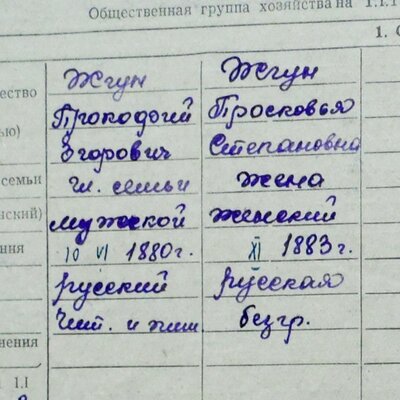 Общественная группа хозяйства на 1.1.1
1. С
ество
ью)
семьи
нский)
ения
нения
1.I
Жгун Жгун
Прокодгий Просковья
Егорович Степановна
гл. семьи жена
мужской женский
10 VI 1880г. XI 1883г.
русский русская
Чит. и пиш безгр.